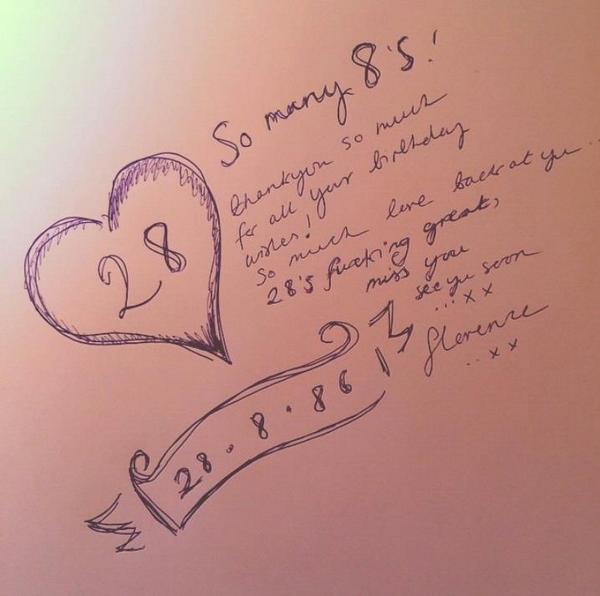 So many 8's!
thankyou so much
for all your birthday
wishes!
So much love back at you..
28's fucking great,
miss you
see you soon
...xx
florence
..xx
28
28.8.86